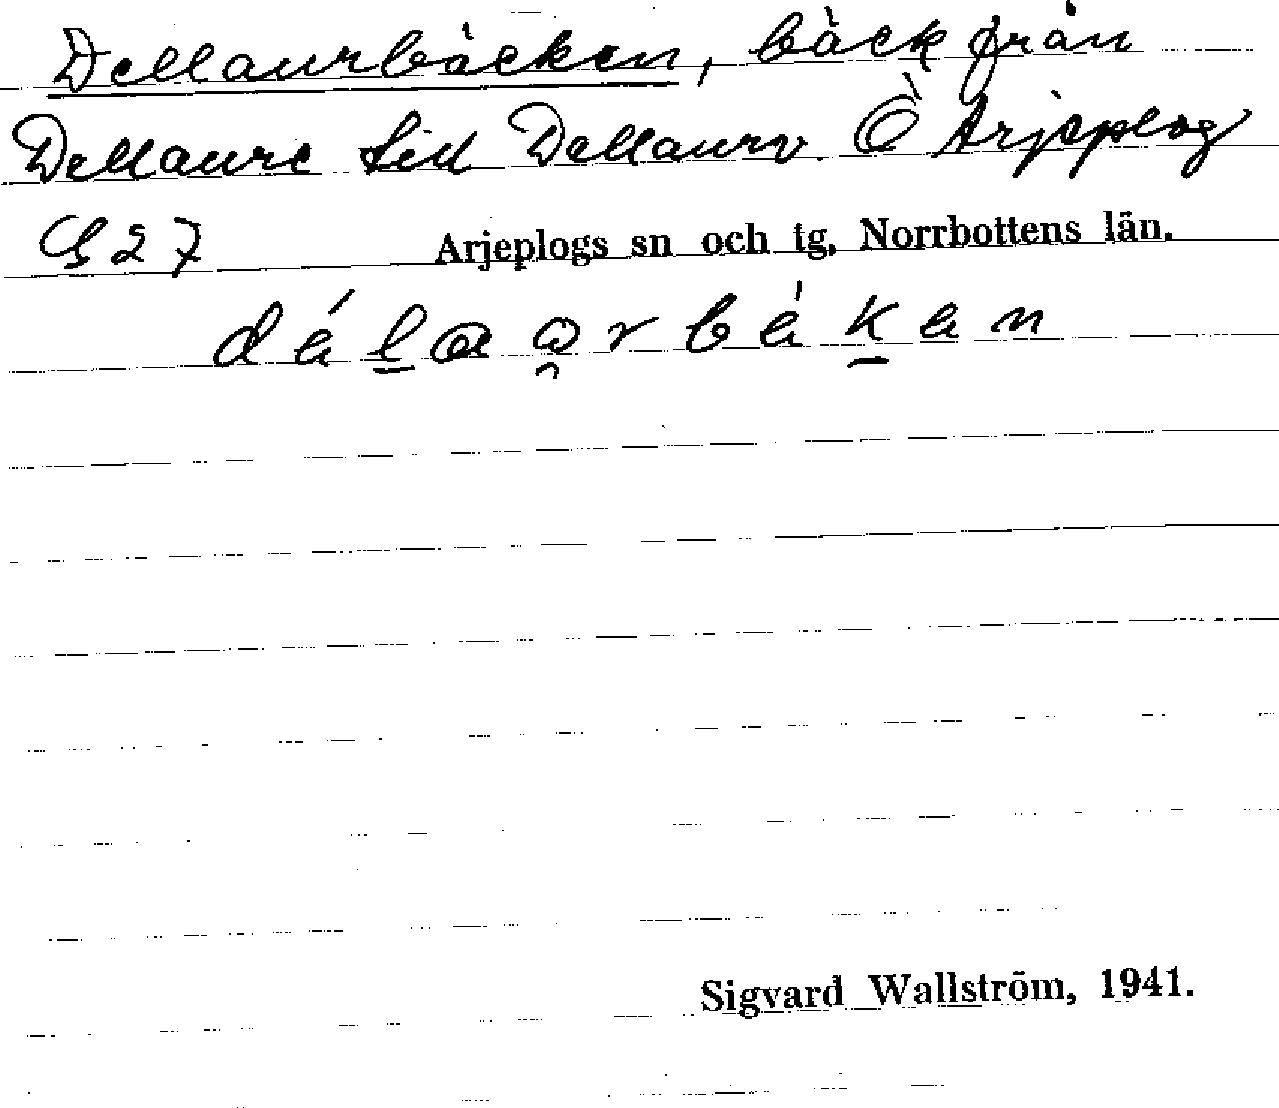 Dellaurbäcken, bäck från
Dellaure till Dellaurv. Ö Arjeplog
S 27 Arjeplogs sn och tg, Norrbottens län.
Sigvard Wallström, 1941.